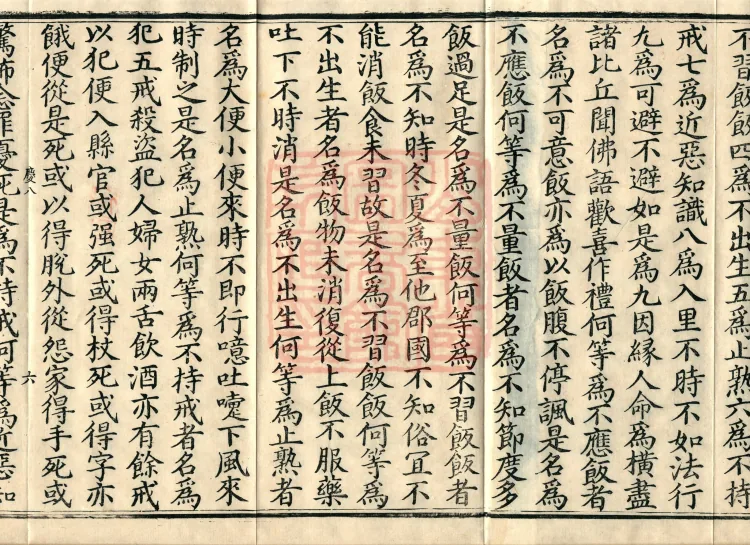 不習飯飯四爲不出生五爲止熟六爲不持
戒七爲近惡知識八爲入里不時不如法行
九爲可避不避如是爲九因縁人命爲橫盡
諸比丘聞佛語歡喜作禮何等爲不應飯者
名爲不可意飯亦爲以飯腹不停諷是名爲
不應飯何等爲不量飯者名爲不知節度多
飯過足是名爲不量飯何等爲不習飯飯者
名爲不知時冬夏爲至他郡國不知俗冝不
能消飯食未習故是名爲不習飯飯何等爲
不出生者名爲飯物未消復從上飯不服藥
吐下不時消是名爲不出生何等爲止熟者
名爲大便小便來時不即行噫吐嚏下風來
時制之是名爲止熟何等爲不持戒者名爲
犯五戒殺盜犯人婦女兩舌飲酒亦有餘戒
以犯便入縣官或强死或得杖死或得字亦
餓便從是死或以得脫外從怨家得手死或
慶八 六
驚怖念罪憂死是爲不持戒何等爲近惡知